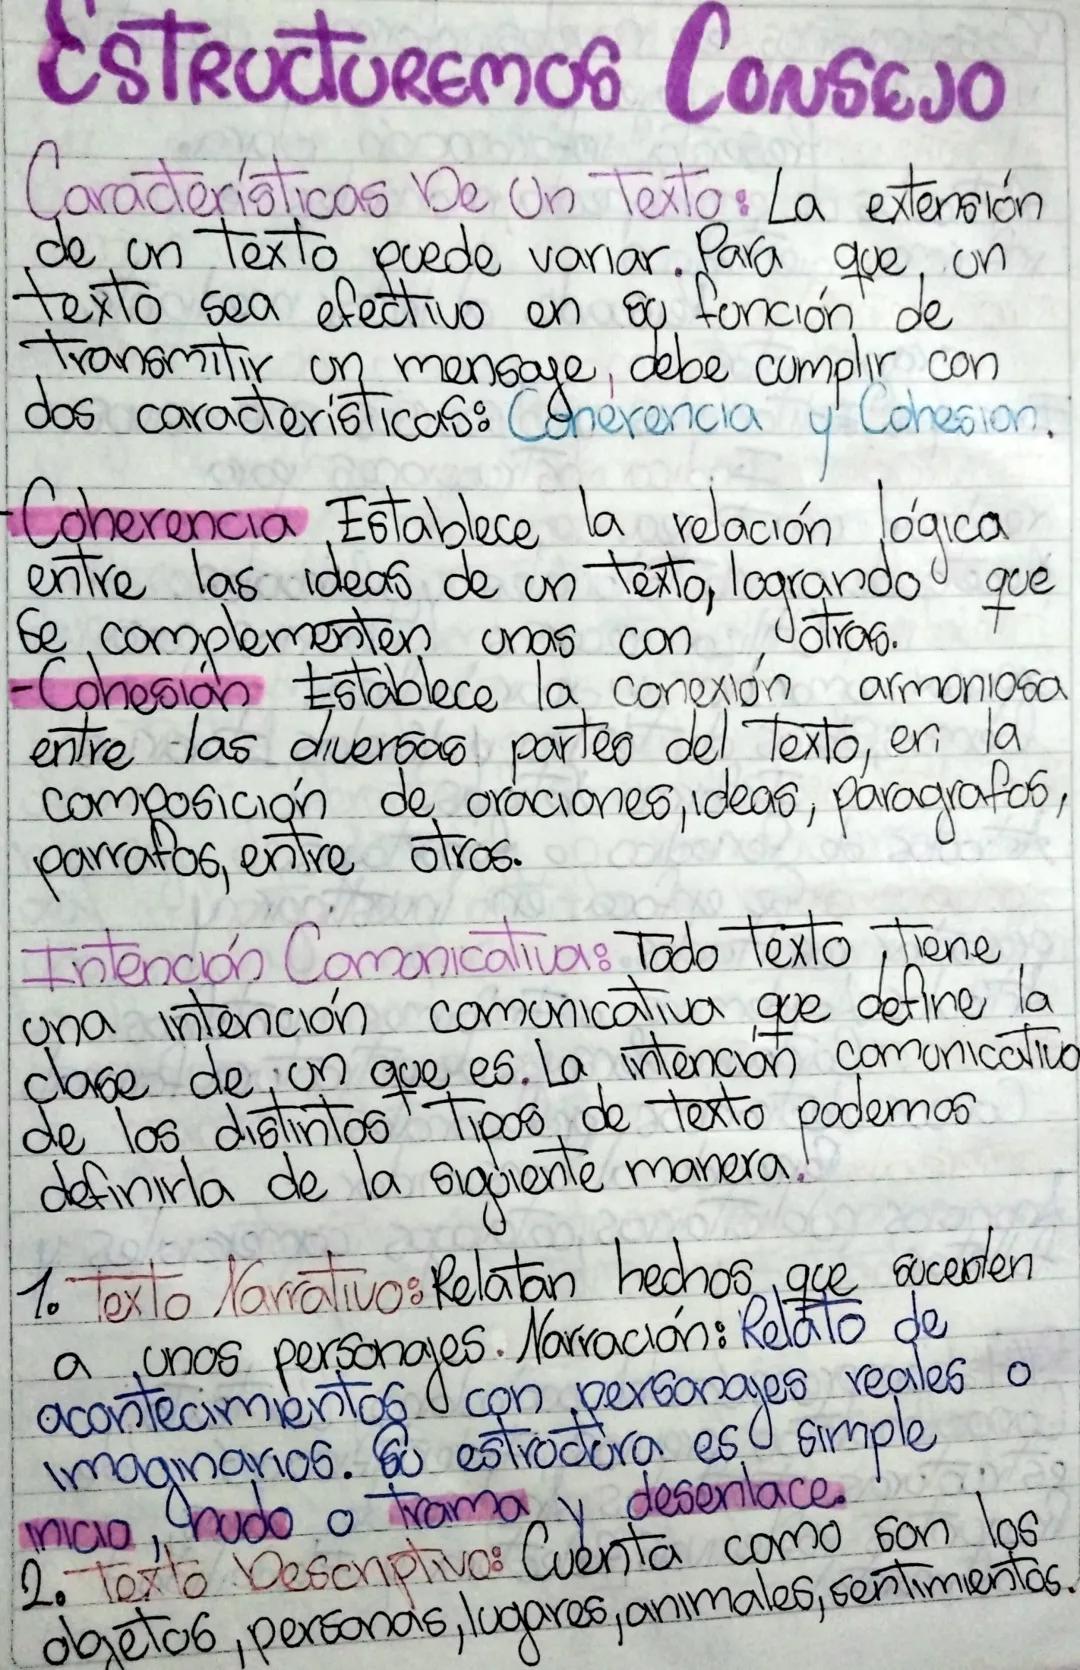 ESTRUCTUREMOS CONSEJO
Características De Un Texto: La extensión
de un texto puede variar. Para que un
texto sea efectivo en su función de
transmitir un mensaje, debe cumplir con
dos características: Coherencia y Cohesion.
-Coherencia Establece la relación lógica
entre las ideas de un texto, logrando que
se complementen unas con otras.
-Cohesión Establece la conexión armoniosa
entre las diversas partes del Texto, en la
composición de oraciones, ideas, páragrafos,
parrafos, entre otros.
Intención Comonicativa: Todo texto tiene
una intención comunicativa que define la
clase de un que es. La intención comunicativa
de los distintos Tipos de texto podemos
definirla de la siguiente manera:
1. Texto Narrativo: Relatan hechos que suceden
a unos personajes. Narración: Relato de
acontecimientos con personajes reales o
imaginarios. Su estructura es simple
inicio, nudo o trama y desenlace.
2. Texto Descriptivo: Cuenta como son los
objetos, personas, lugares, animales, sentimientos.